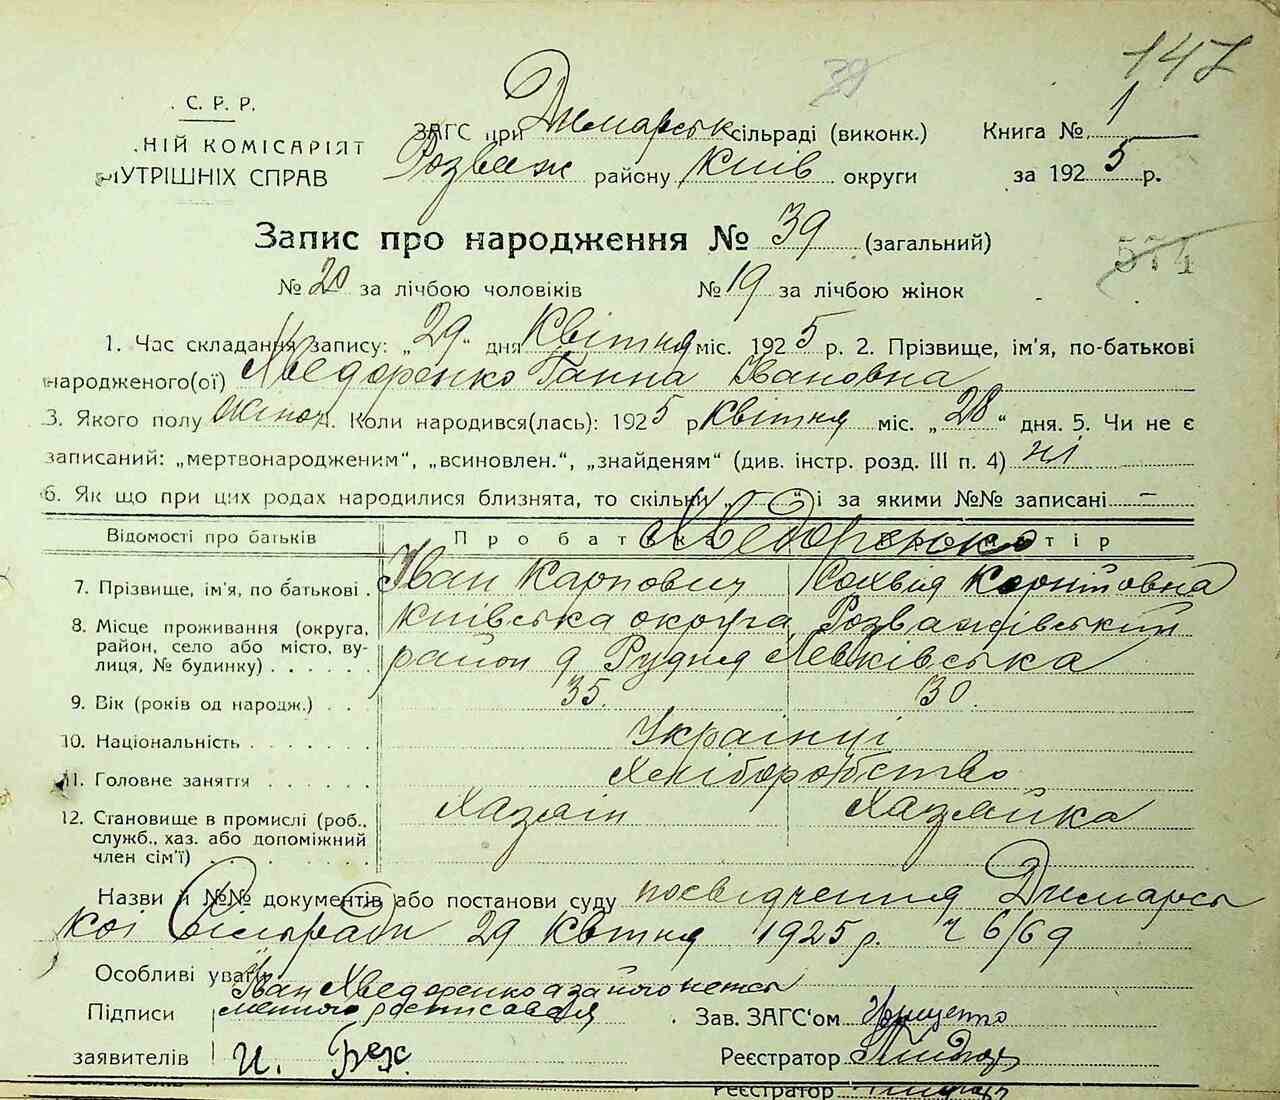 147
39
С. Р. Р.
НІЙ КОМІСАРІЯТ
УТРІШНІХ СПРАВ
ЗАГС при Димарськ сільраді (виконк.) Книга № 1
Розваж району Київ округи за 1925 р.
Запис про народження № 39 (загальний)
574
№ 20 за лічбою чоловіків № 19 за лічбою жінок
1. Час складання запису: „29“ дня Квітня міс. 1925 р. 2. Прізвище, ім'я, по-батькові
народженого(ої) Хведоренко Ганна Івановна
3. Якого полу жіноч. 4. Коли народився(лась): 1925 р Квітня міс. „28“ дня. 5. Чи не є
записаний: „мертвонародженим“, „всиновлен.“, „знайденям“ (див. інстр. розд. III п. 4) ні
6. Як що при цих родах народилися близнята, то скільки „ - “ і за якими №№ записані -
Відомості про батьків Про батька Про матір
Хведоренко
7. Прізвище, ім'я, по батькові . Іван Карпович
8. Місце проживання (округа, Київська округа, Розважівський
район, село або місто, ву-
лиця, № будинку) . . . . . район д Рудня Левківська
9. Вік (років од народж.) . . 35. 30.
10. Національність . . . . . . . Українці
11. Головне заняття . . . . . . Хліборобство
12. Становище в промислі (роб., Хазяїн Хазяйка
служб., хаз. або допоміжний
член сім'ї) . . . . . . . . .
Назви й №№ документів або постанови суду посвідчення Димарсь
кої Сільради 29 Квітня 1925 р. ч 6/69
Особливі уваги
Іван Хведоренко а за його непись
менного росписався
Підписи
Зав. ЗАГС'ом
заявителів И. Беж.
Реєстратор
Реєстратор